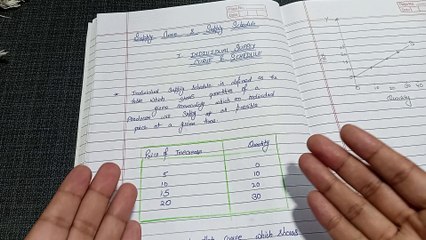 Supply Curve & Supply Schedule
I. INDIVIDUAL SUPPLY
CURVE & SCHEDULE
Individual Supply Schedule is defined as the
table which shows quantities of a
given commodity which an individual
Producer will supply at all possible
price at a given time.
Price of Icecream Quantity
5 0
10 10
15 20
20 30
curve which shows
Y
Quantity
0 10 20 30 40